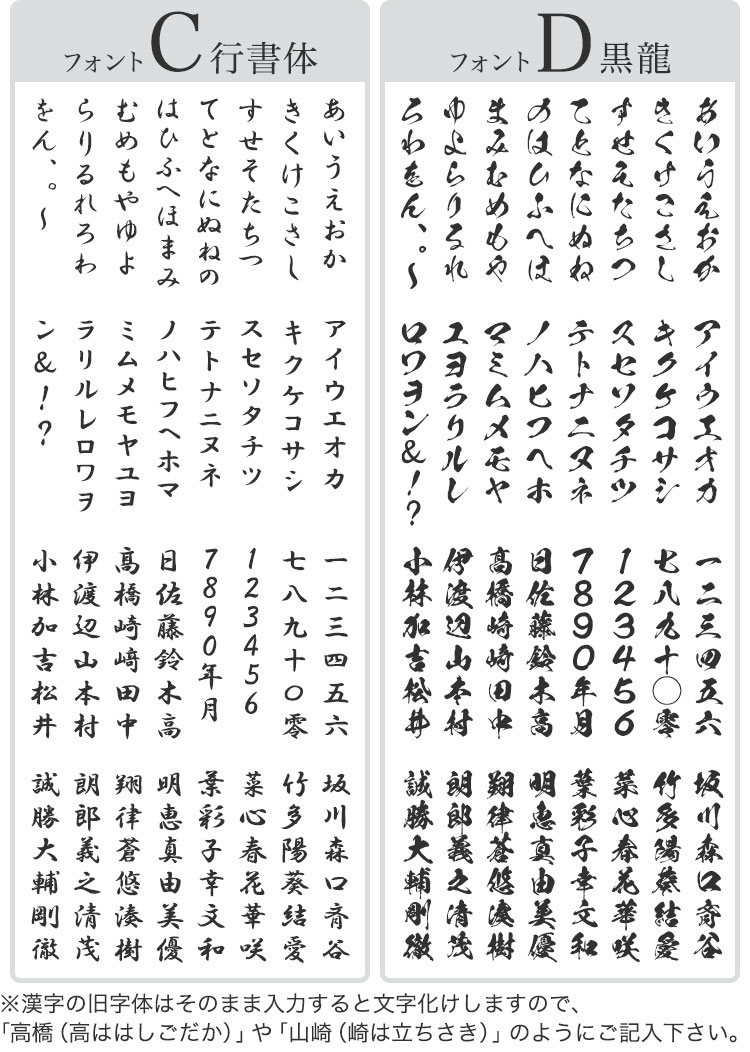 フォントC行書体
あいうえおか
きくけこさし
すせそたちつ
てとなにぬねの
はひふへほまみ
むめもやゆよ
らりるれろわ
をん、。〜
アイウエオカ
キクケコサシ
スセソタチツ
テトナニヌネ
ノハヒフヘホマ
ミムメモヤユヨ
ラリルレロワヲ
ン&!?
一二三四五六
七八九十〇零
123456
7890年月
日佐藤鈴木高
髙橋崎﨑田中
伊渡辺山本村
小林加吉松井
坂川森口斉谷
竹多陽葵結愛
菜心春花華咲
葉彩子幸文和
明恵真由美優
翔律蒼悠湊樹
朗郎義之清茂
誠勝大輔剛徹
フォントD黒龍
あいうえおか
きくけこさし
すせそたちつ
てとなにぬね
のはひふへほ
まみむめもや
ゆよらりるれ
ろわをん、。〜
アイウエオカ
キクケコサシ
スセソタチツ
テトナニヌネ
ノハヒフヘホ
マミムメモヤ
ユヨラリルレ
ロワヲン&!?
一二三四五六
七八九十〇零
123456
7890年月
日佐藤鈴木高
髙橋崎﨑田中
伊渡辺山本村
小林加吉松井
坂川森口斉谷
竹多陽葵結愛
菜心春花華咲
葉彩子幸文和
明恵真由美優
翔律蒼悠湊樹
朗郎義之清茂
誠勝大輔剛徹
※漢字の旧字体はそのまま入力すると文字化けしますので、
「高橋（高ははしごだか）」や「山崎（崎は立ちさき）」のようにご記入下さい。